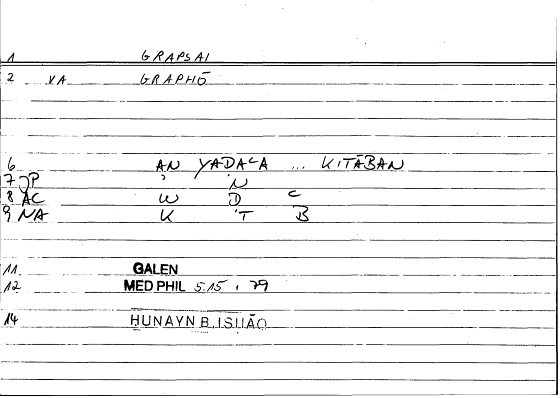 1 GRAPSAI
2 VA GRAPHŌ
6 AN YADAʿA ... KITĀBAN
7 JP ʾ N
8 AC W D ʿ
9 NA K T B
11 GALEN
12 MED PHIL 5.15, 79
14 HUNAYN B. ISḤĀQ